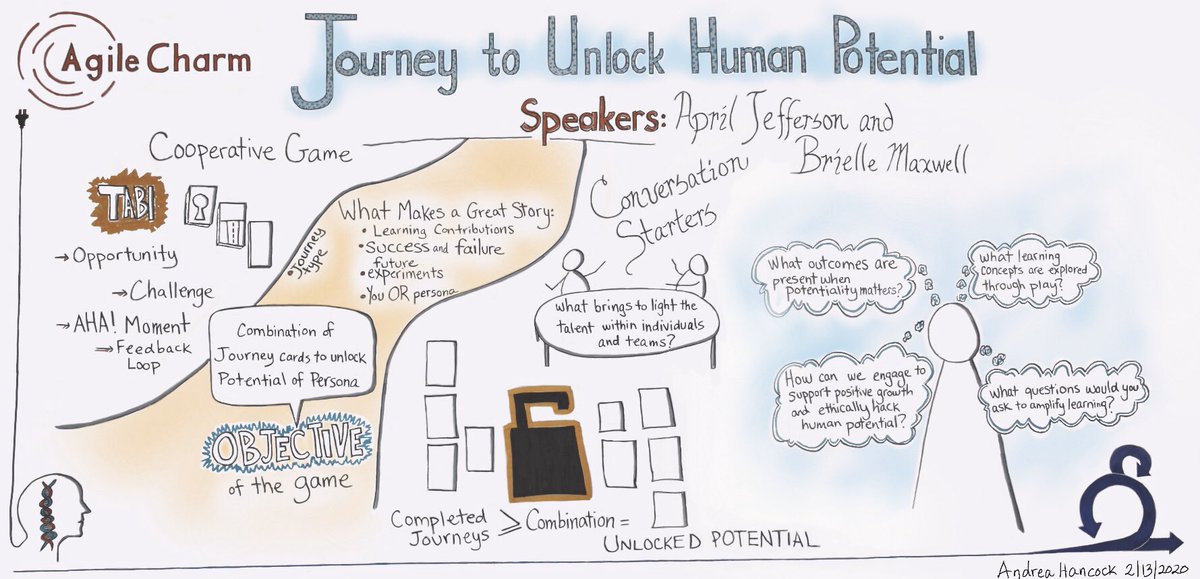 Agile Charm
Journey to Unlock Human Potential
Speakers: April Jefferson and
Brielle Maxwell
Cooperative Game
TABI
→ Opportunity
→ Challenge
→ AHA! Moment
⇒ Feedback
Loop
• Journey
type
What Makes a Great Story:
• Learning Contributions
• Success and failure
future
• experiments
• You OR persona
Combination of
Journey cards to unlock
Potential of Persona
OBJECTIVE
of the game
Conversation
Starters
What brings to light the
talent within individuals
and teams?
Completed
Journeys
≥ Combination =
UNLOCKED POTENTIAL
What outcomes are
present when
potentiality matters?
What learning
concepts are explored
through play?
How can we engage to
support positive growth
and ethically hack
human potential?
What questions would you
ask to amplify learning?
Andrea Hancock 2/13/2020